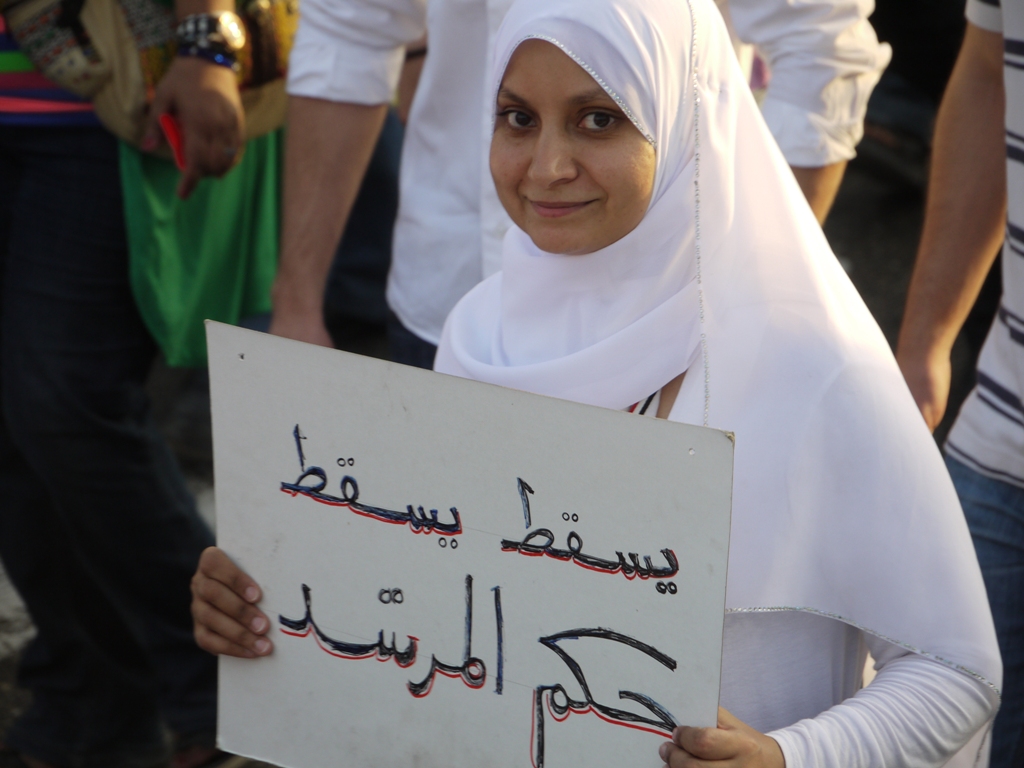 يسقط يسقط
حكم المرشد